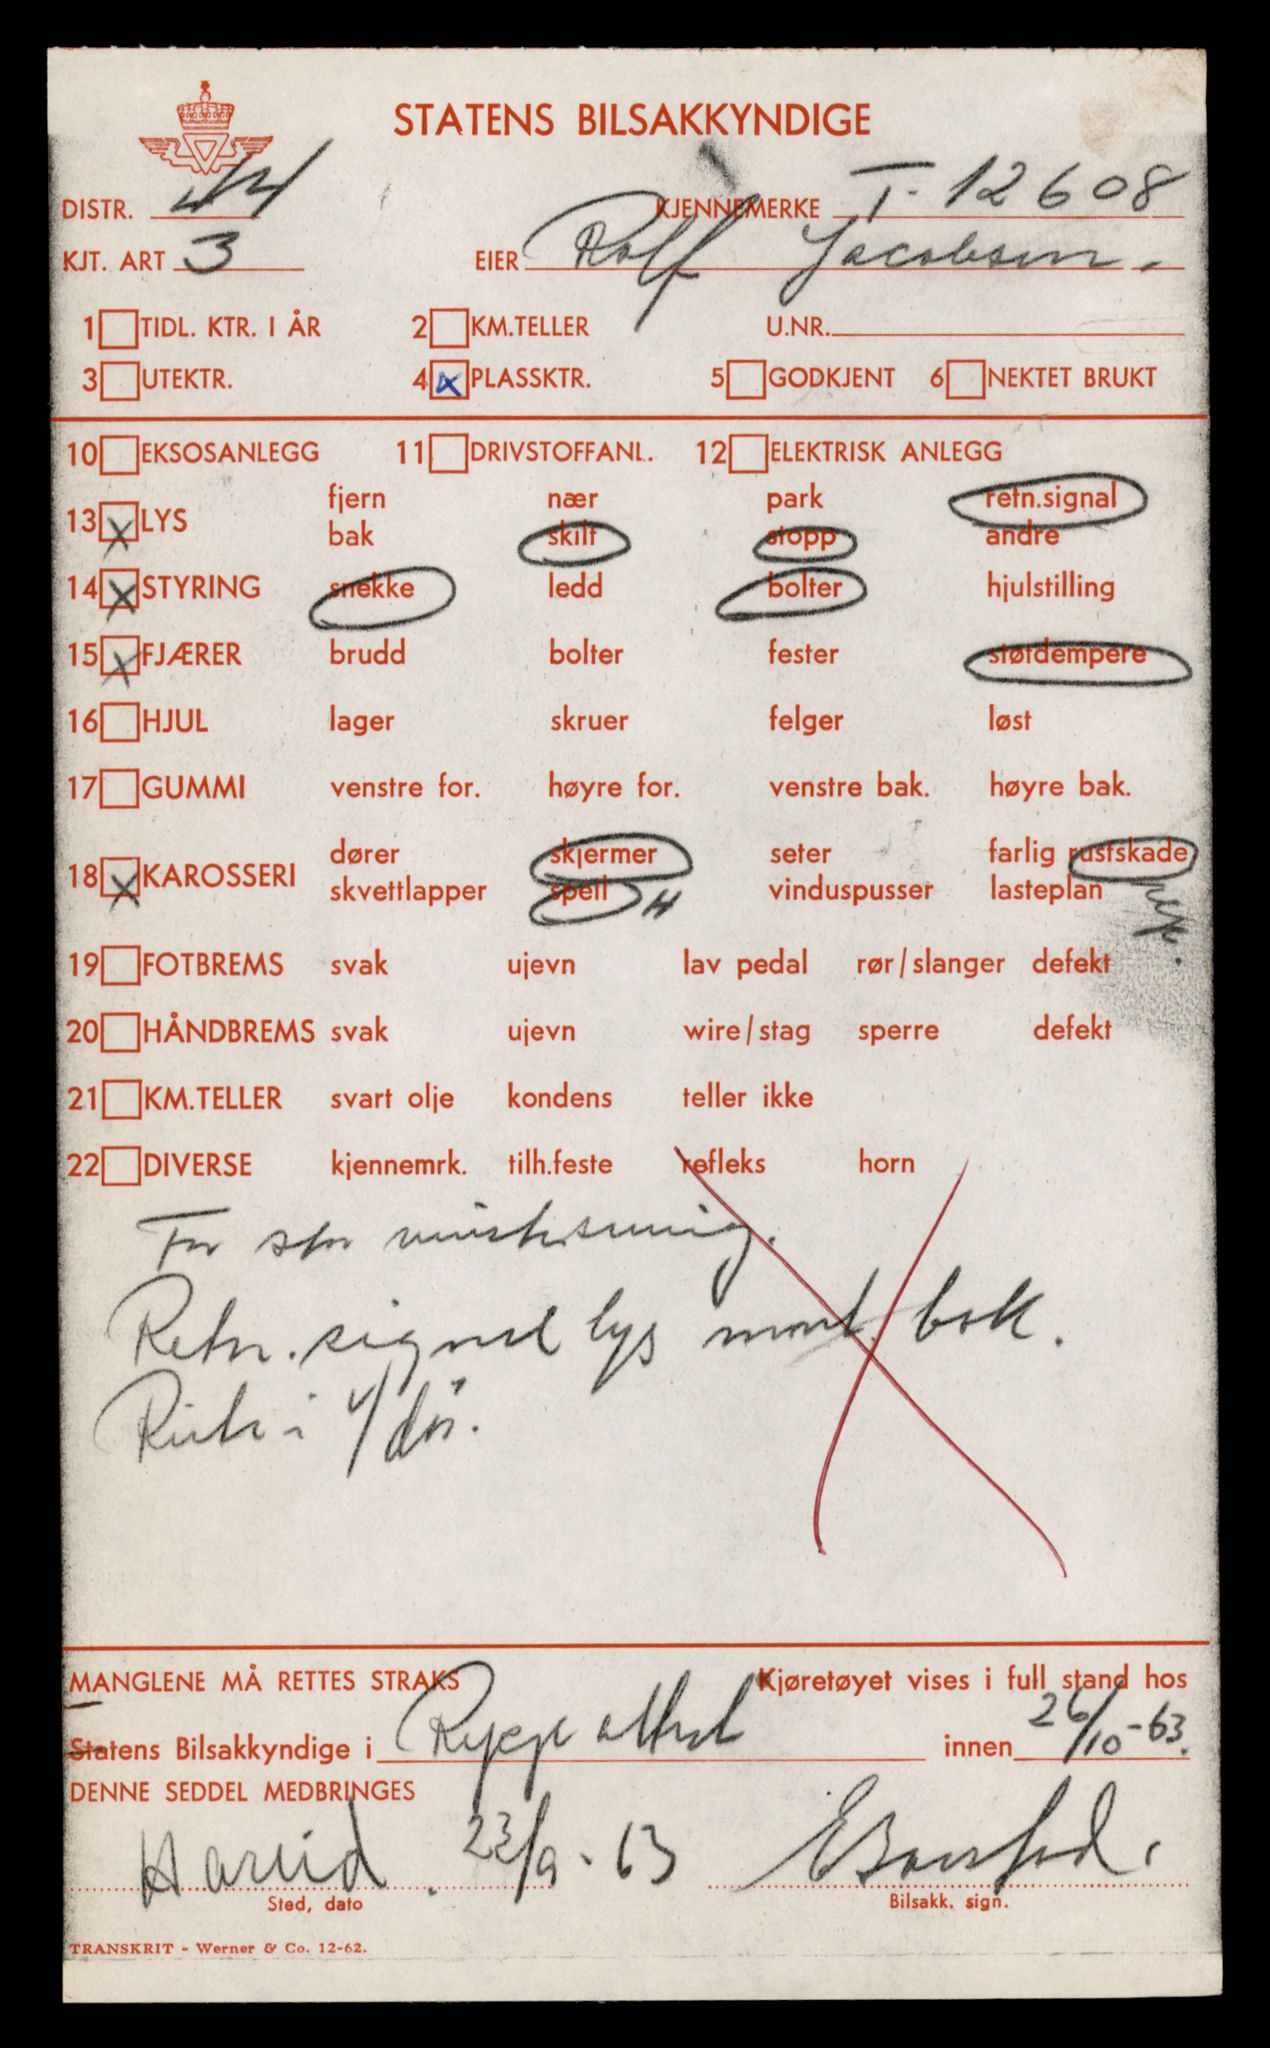 STATENS BILSAKKYNDIGE
DISTR. KJENNEMERKE T-12608
KJT. ART 3 EIER Rolf Jacobsen.
1 TIDL. KTR. I ÅR 2 KM.TELLER U.NR.
3 UTEKTR. 4 x PLASSKTR. 5 GODKJENT 6 NEKTET BRUKT
10 EKSOSANLEGG 11 DRIVSTOFFANL. 12 ELEKTRISK ANLEGG
fjern nær park retn.signal
13 x LYS
bak skilt stopp andre
14 x STYRING snekke ledd bolter hjulstilling
15 x FJÆRER brudd bolter fester støtdempere
16 HJUL lager skruer felger løst
17 GUMMI venstre for. høyre for. venstre bak. høyre bak.
dører skjermer seter farlig rustskade
18 x KAROSSERI
skvettlapper speil H vinduspusser lasteplan
19 FOTBREMS svak ujevn lav pedal rør/slanger defekt
20 HÅNDBREMS svak ujevn wire/stag sperre defekt
21 KM.TELLER svart olje kondens teller ikke
22 DIVERSE kjennemrk. tilh.feste refleks horn
For stor
Retn. signal lys mont. bak.
i v/dør.
MANGLENE MÅ RETTES STRAKS Kjøretøyet vises i full stand hos
Statens Bilsakkyndige i innen 26/10-63.
DENNE SEDDEL MEDBRINGES
Hareid. 23/9-63
Sted, dato Bilsakk. sign.
TRANSKRIT - Werner & Co. 12-62.